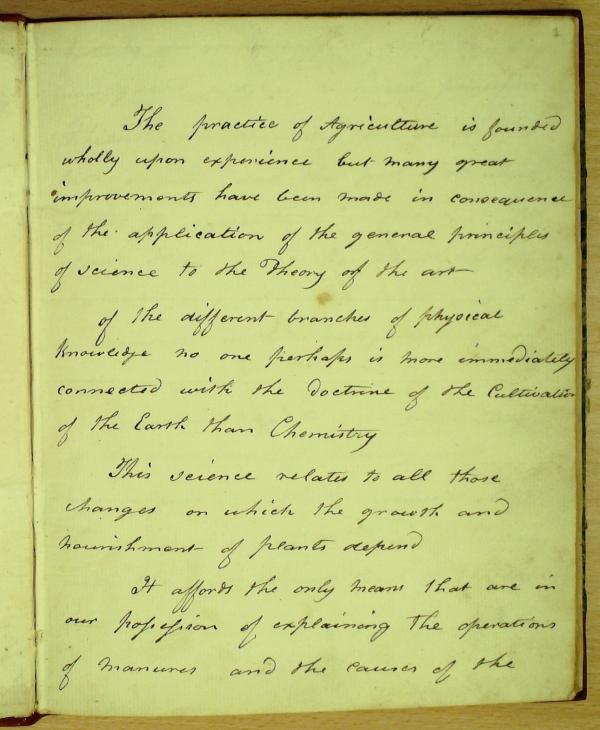 1
The practice of Agriculture is founded
wholly upon experience but many great
improvements have been made in consequence
of the application of the general principles
of science to the Theory of the art
of the different branches of physical
knowledge no one perhaps is more immediately
connected with the doctrine of the Cultivation
of the Earth than Chemistry
This science relates to all those
changes on which the growth and
nourishment of plants depend
It affords the only means that are in
our poſseſsion of explaining the operations
of manures and the causes of the